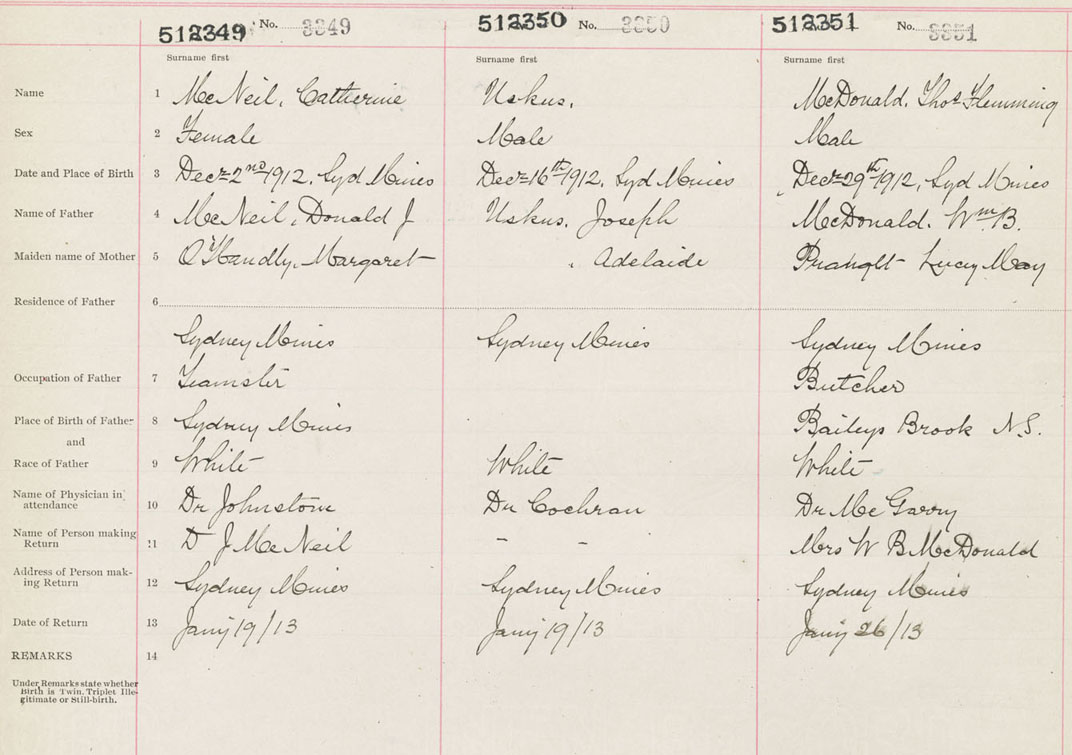 512349 No. 3349 512350 No. 3350 512351 No. 3351
Surname first Surname first Surname first
Name 1 McNeil, Catherine Uskus, McDonald, Thos Flemming
Sex 2 Female Male Male
Date and Place of Birth 3 Decr 2nd 1912, Syd Mines Decr 16th 1912, Syd Mines Decr 29th 1912, Syd Mines
Name of Father 4 McNeil, Donald J Uskus, Joseph McDonald, Wm B.
Maiden name of Mother 5 O'Handly, Margaret , Adelaide Lucy May
Residence of Father 6
Sydney Mines Sydney Mines Sydney Mines
Occupation of Father 7 Teamster Butcher
Place of Birth of Father 8 Sydney Mines Baileys Brook N.S.
and
Race of Father 9 White White White
Name of Physician in
attendance 10 Dr Johnstone Dr Cochran Dr McGarry
Name of Person making
Return 11 D J McNeil - - Mrs W B McDonald
Address of Person mak-
ing Return 12 Sydney Mines Sydney Mines Sydney Mines
Date of Return 13 Jany 19/13 Jany 19/13 Jany 26/13
REMARKS 14
Under Remarks state whether
Birth is Twin, Triplet Ille-
gitimate or Still-birth.